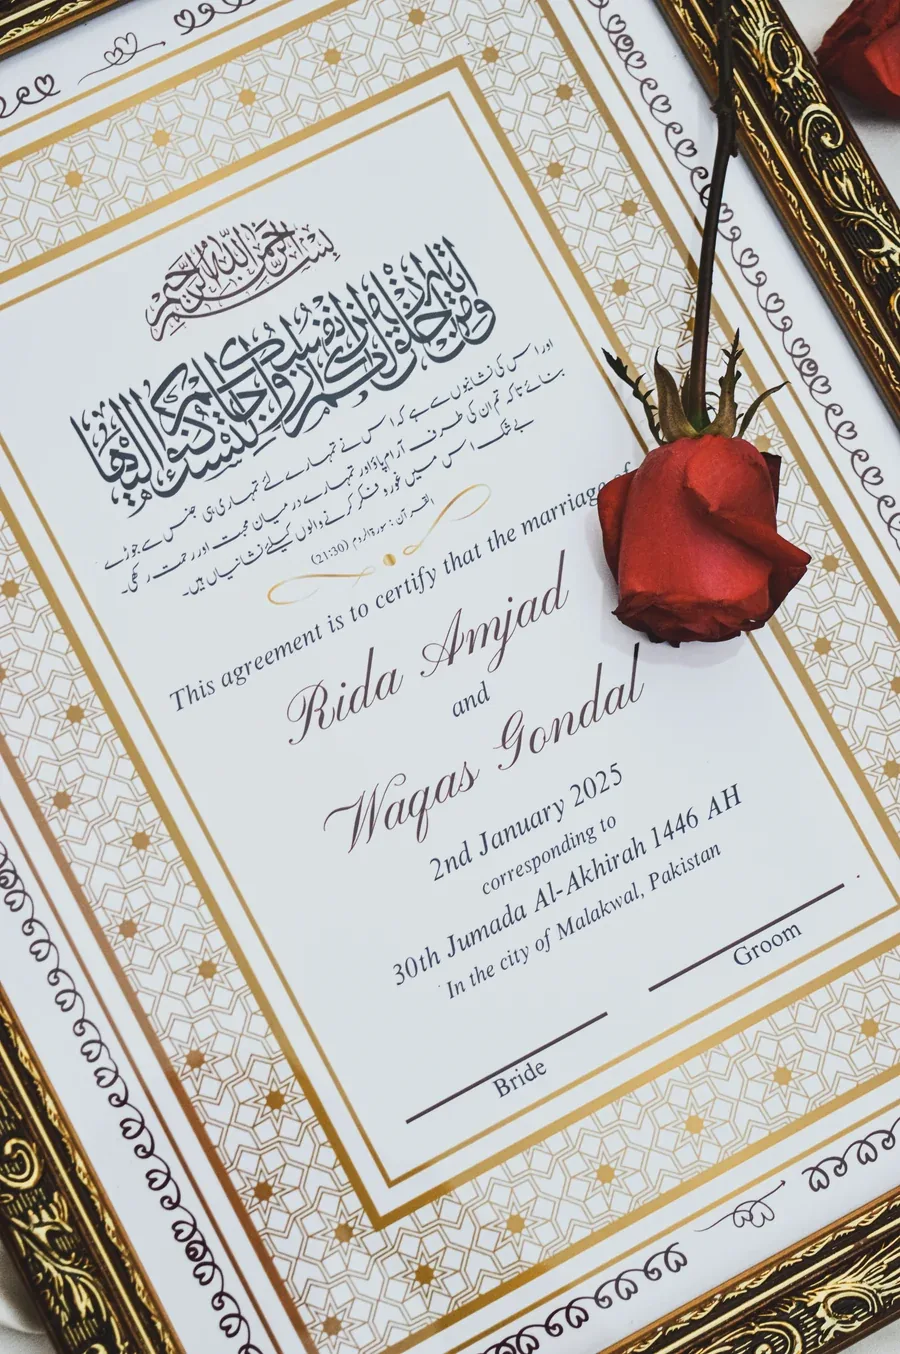 بسم الله الرحمن الرحيم
ومن آياته أن خلق لكم من أنفسكم أزواجا لتسكنوا إليها
اور اس کی نشانیوں سے ہے کہ اس نے تمہارے لئے تمہاری ہی جنس سے جوڑے
بنائے تاکہ تم ان کی طرف آرام پاؤ اور تمہارے درمیان محبت اور رحمت رکھی۔
بے شک اس میں غور و فکر کرنے والوں کیلئے نشانیاں ہیں۔
القرآن: سورۃ الروم (21:30)
This agreement is to certify that the marriage of
Rida Amjad
and
Waqas Gondal
2nd January 2025
corresponding to
30th Jumada Al-Akhirah 1446 AH
In the city of Malakwal, Pakistan
Groom
Bride